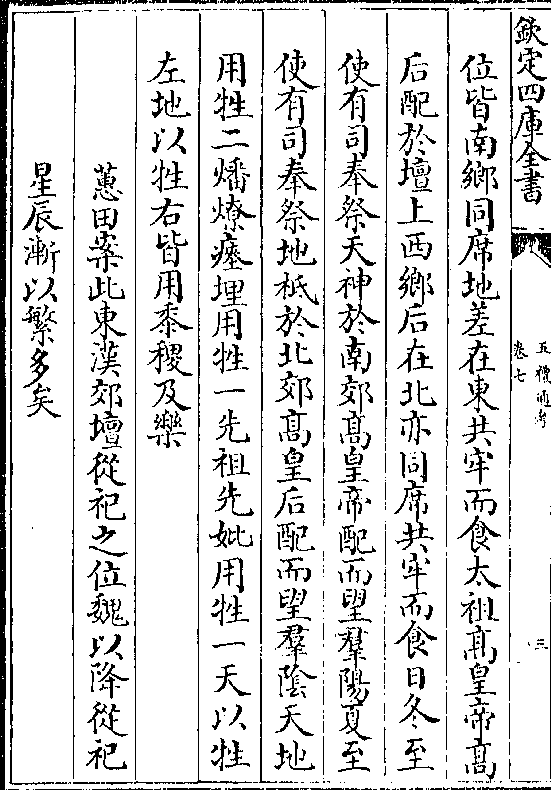 欽定四庫全書
五禮通考
卷七
三
位皆南鄉同席地差在東共牢而食太祖髙皇帝髙
后配於壇上西鄉后在北亦同席共牢而食日冬至
使有司奉祭天神於南郊髙皇帝配而望羣陽夏至
使有司奉祭地祗於北郊髙皇后配而望羣陰天地
用牲二燔燎瘞埋用牲一先祖先妣用牲一天以牲
左地以牲右皆用黍稷及樂
蕙田案此東漢郊壇從祀之位魏以降從祀
星辰漸以繁多矣